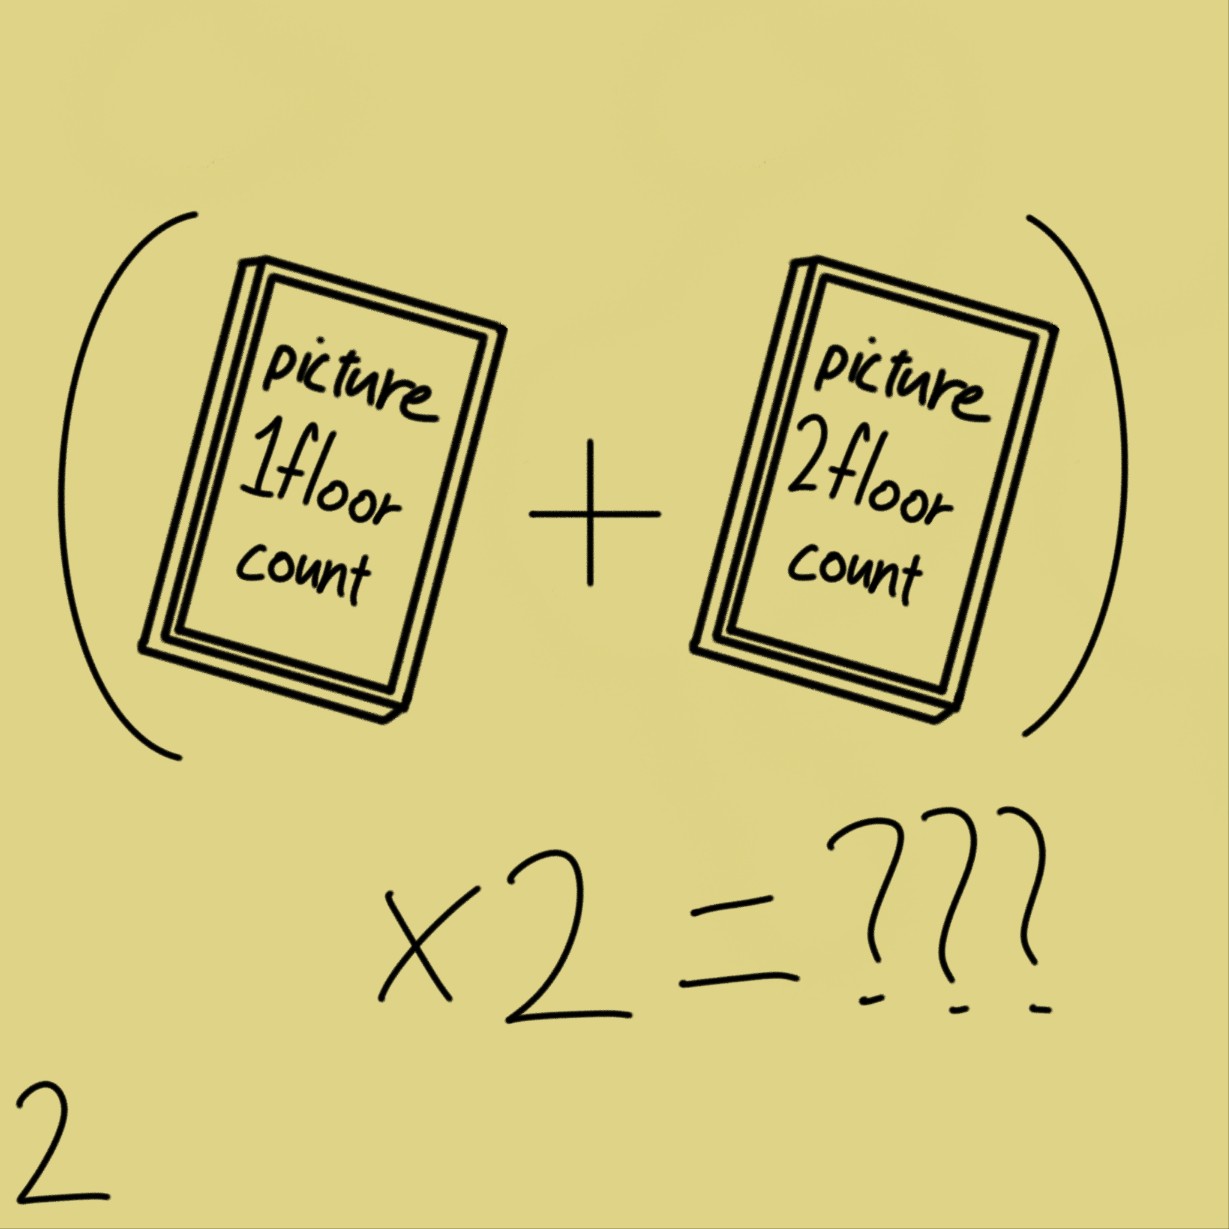 ( picture 1floor count + picture 2floor count )
x2=???
2